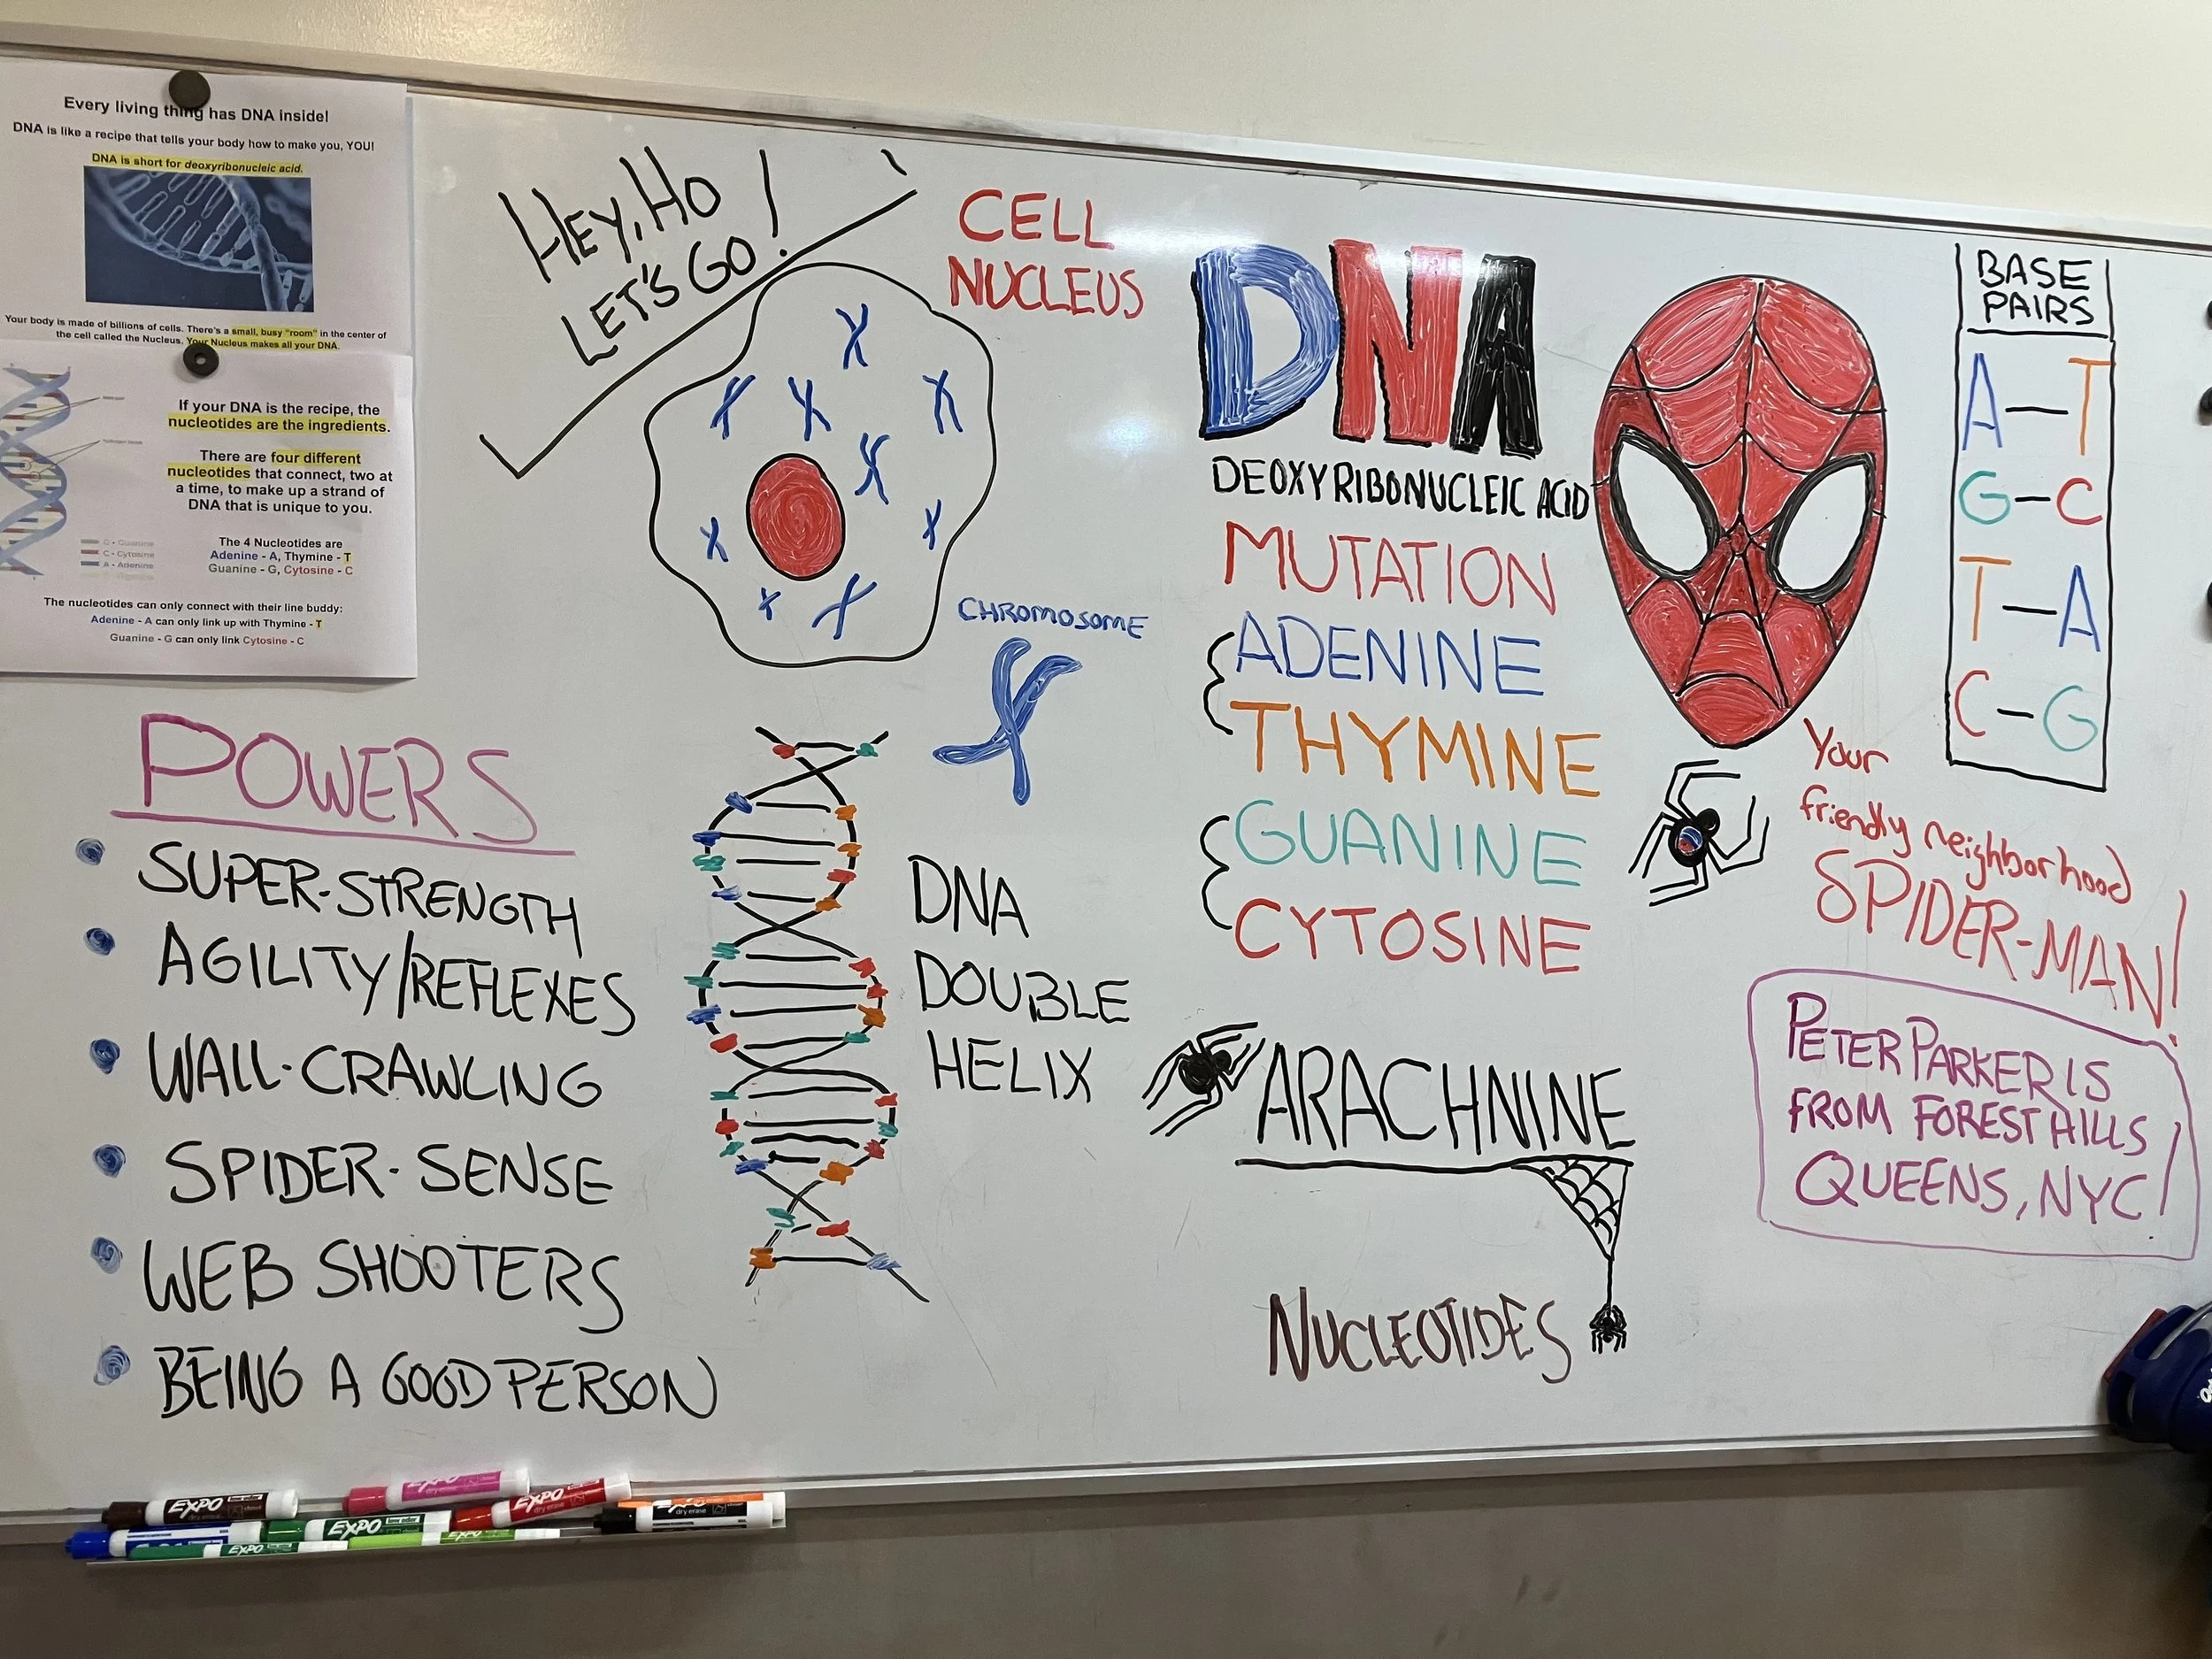 Every living thing has DNA inside!
DNA is like a recipe that tells your body how to make you, YOU!
DNA is short for deoxyribonucleic acid.
Your body is made of billions of cells. There's a small, busy "room" in the center of
the cell called the Nucleus. Your Nucleus makes all your DNA.
If your DNA is the recipe, the
nucleotides are the ingredients.
There are four different
nucleotides that connect, two at
a time, to make up a strand of
DNA that is unique to you.
G - Guanine
C - Cytosine
A - Adenine
The 4 Nucleotides are
Adenine - A, Thymine - T
Guanine - G, Cytosine - C
The nucleotides can only connect with their line buddy:
Adenine - A can only link up with Thymine - T
Guanine - G can only link Cytosine - C
HEY, HO
LET'S GO!
CELL
NUCLEUS
CHROMOSOME
POWERS
SUPER-STRENGTH
AGILITY/REFLEXES
WALL-CRAWLING
SPIDER-SENSE
WEB SHOOTERS
BEING A GOOD PERSON
DNA
DOUBLE
HELIX
DNA
DEOXYRIBONUCLEIC ACID
MUTATION
ADENINE
THYMINE
GUANINE
CYTOSINE
ARACHNINE
NUCLEOTIDES
BASE
PAIRS
A—T
G—C
T—A
C—G
Your
friendly neighborhood
SPIDER-MAN!
PETER PARKER IS
FROM FOREST HILLS
QUEENS, NYC!
EXPO
EXPO
EXPO
EXPO
EXPO
EXPO